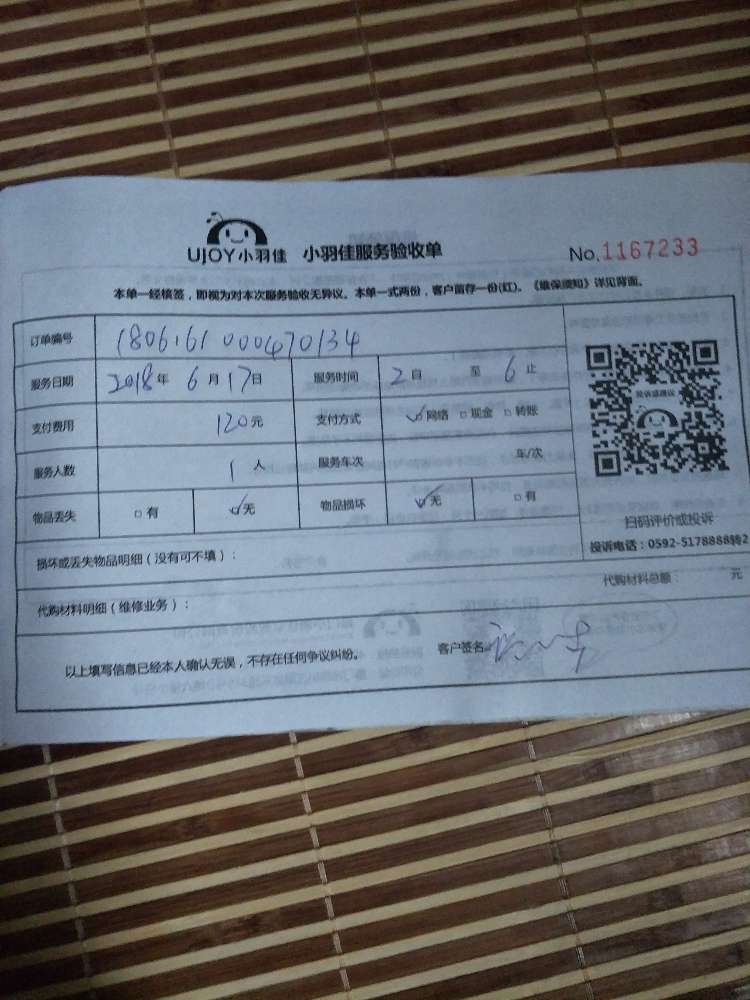 UJOY小羽佳 小羽佳服务验收单 No.1167233
本单一经核签，即视为对本次服务验收无异议。本单一式两份，客户留存一份(红)。《维保须知》详见背面。
订单编号 1806161000470134
服务日期 2018年6月17日 服务时间 2自 至6止
支付费用 120元 支付方式 ☑网络 □现金 □转账
服务人数 1人 服务车次 车/次
物品丢失 □有 ☑无 物品损坏 ☑无 □有
投诉或建议
扫码评价或投诉
投诉电话：0592-5178888转2
损坏或丢失物品明细（没有可不填）：
代购材料明细（维修业务）： 代购材料总额： 元
以上填写信息已经本人确认无误，不存在任何争议纠纷。 客户签名